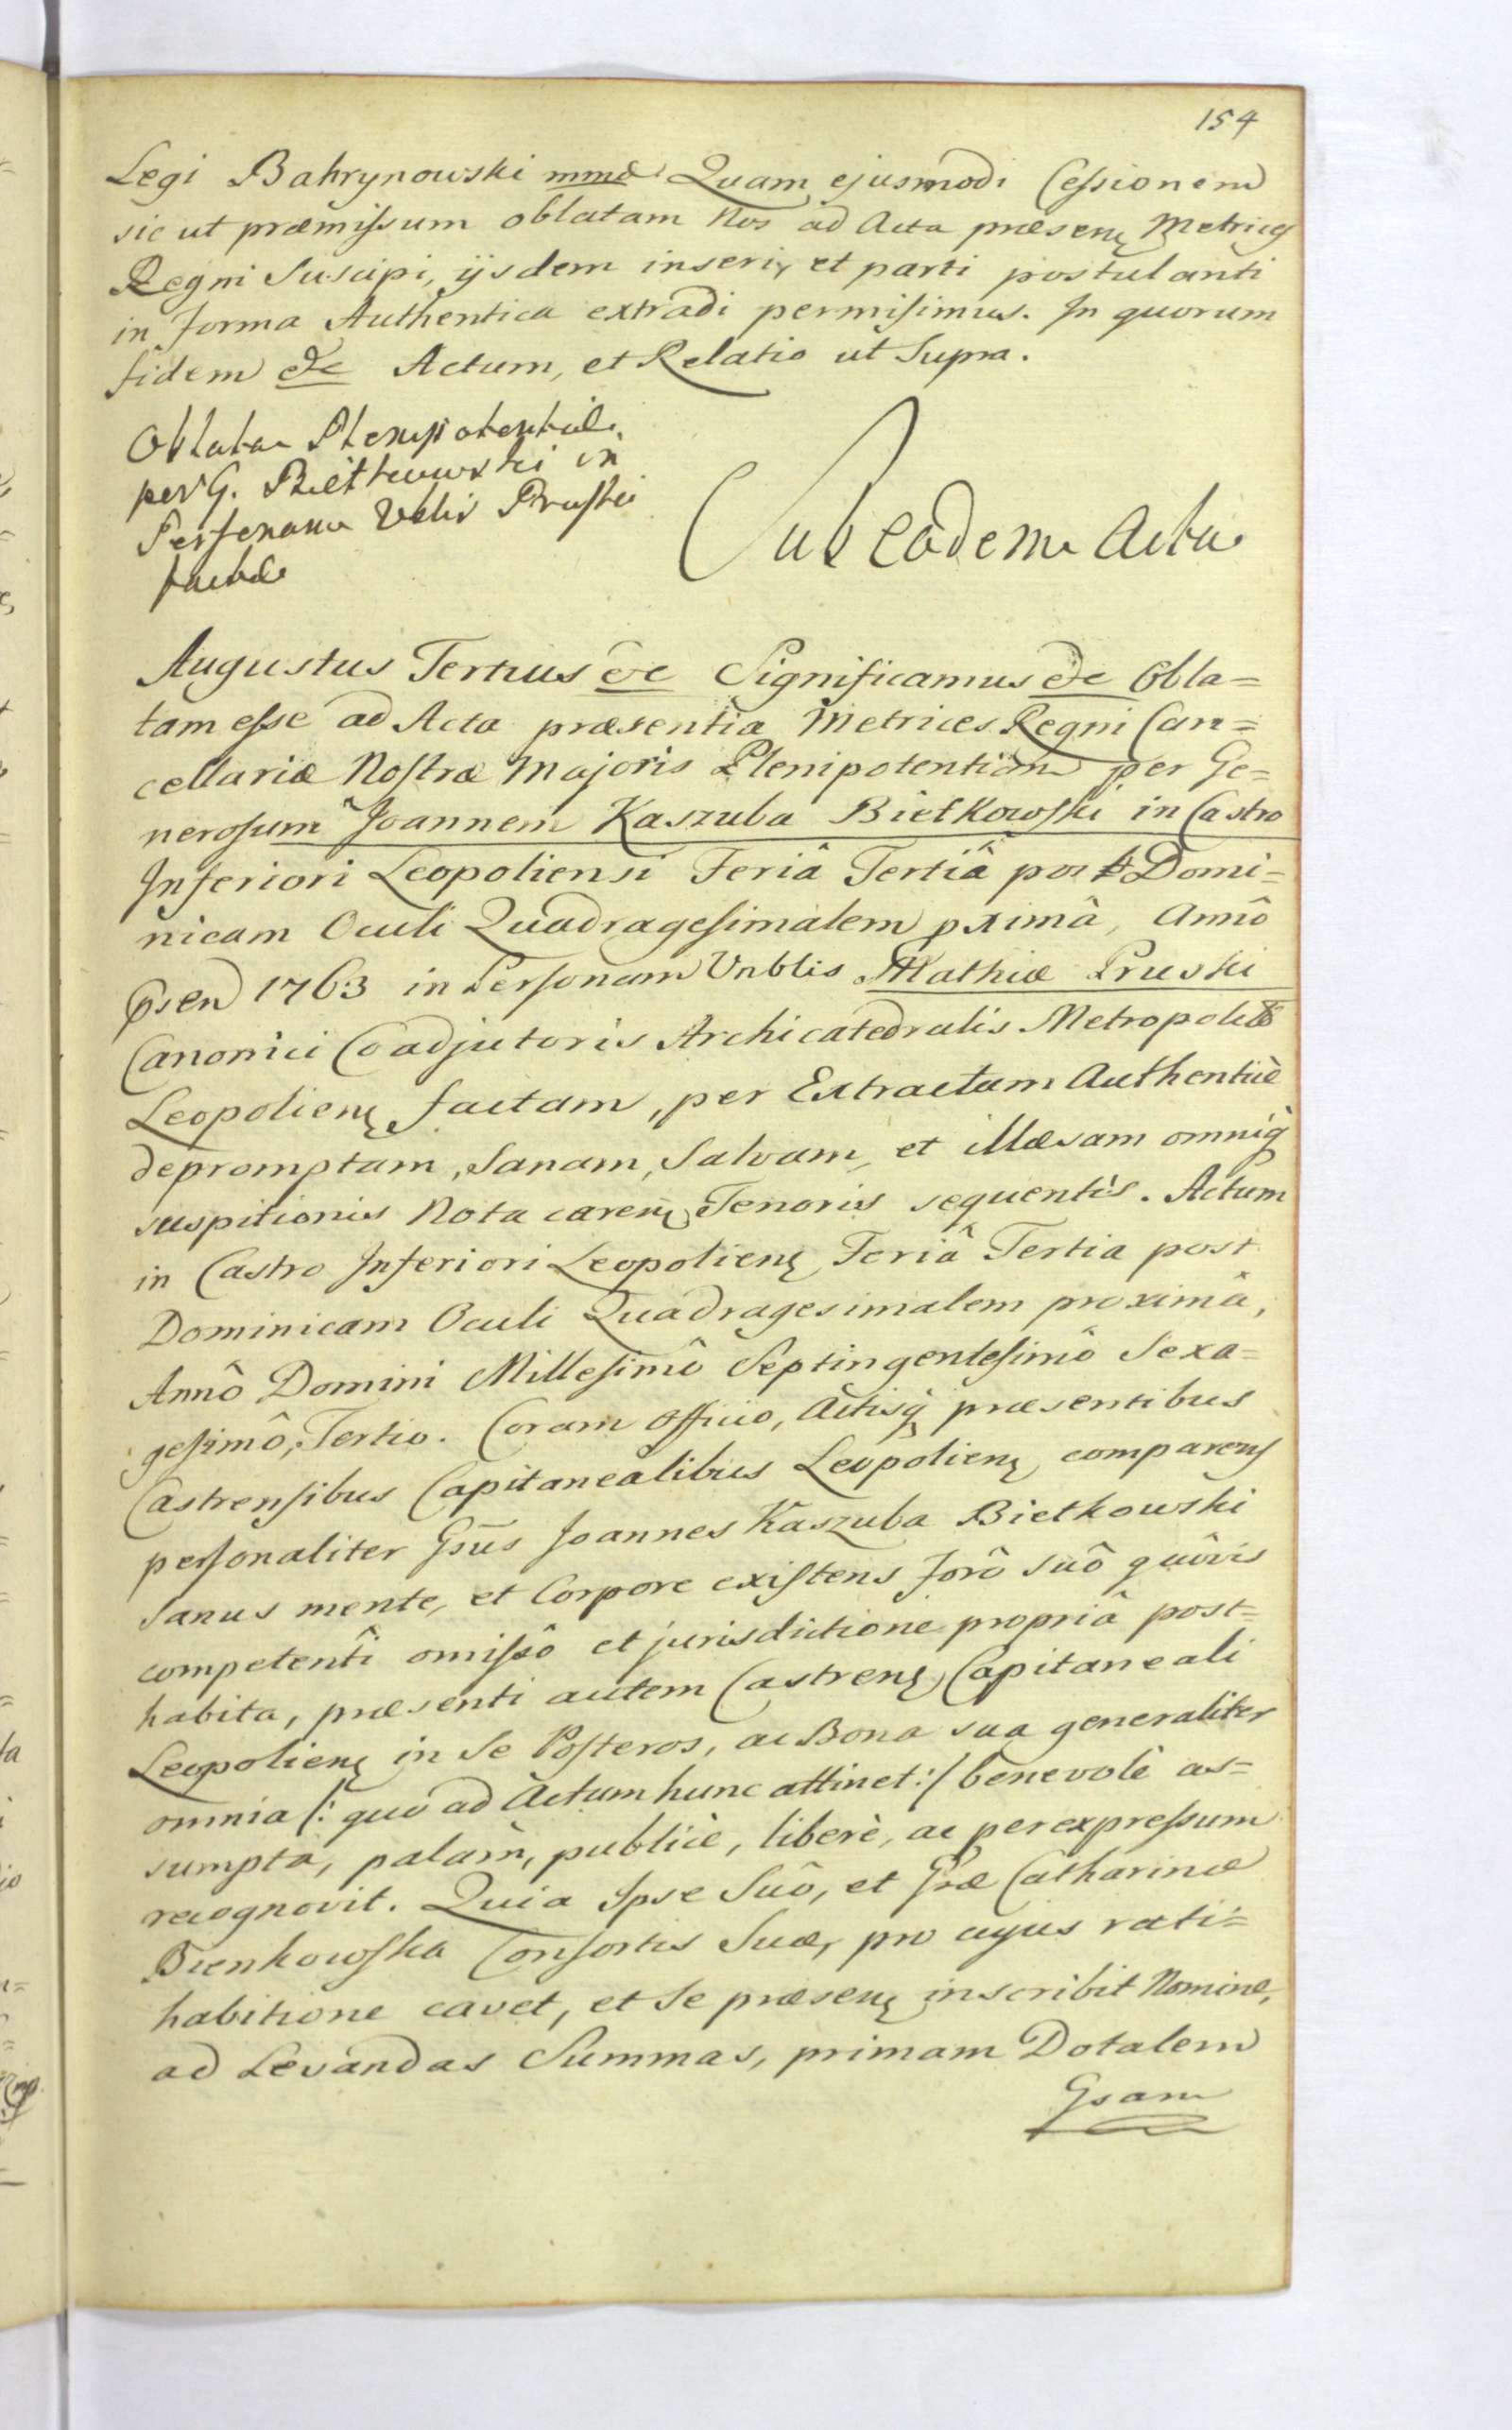 154
Legi Bahrynowski mmô Quam ejusmodi Cessionem
sic ut præmissum oblatam Nos ad Acta præsenę Metrices
Regni Suscipi, ijsdem inseri, et parti postulanti
in forma Authentica extradi permisimus. In quorum
fidem &c Actum, et Relatio ut Supra.
Oblata Plenipotentiæ
per G. Bietkowski in
Personam Vblis Pruski
factæ
Sub eadem Actu
Augustus Tertius &c Significamus &c Obla=
tam esse ad Acta præsentia Metrices Regni Can=
cellariæ Nostræ Majoris Plenipotentiam per Ge=
nerosum Joannem Kaszuba Bietkowski in Castro
Inferiori Leopoliensi Feriâ Tertiâ post Domi=
nicam Oculi Quadragesimalem pximâ, Annô
pseñ 1763 in Personam Vnblis Mathiæ Pruski
Canonici Coadjutoris Archicatedralis Metropolitæ
Leopolienę factam, per Extractum Authenticè
depromptam, Sanam, Salvam, et illæsam omniq̀
suspitionis Nota carenę Tenoris sequentis. Actum
in Castro Inferiori Leopolienę Feriâ Tertia post
Dominicam Oculi Quadragesimalem proximâ,
Annô Domini Millesimô Septingentesimô Sexa=
gesimô, Tertio. Coram Officio, Actisq̀ præsentibus
Castrensibus Capitanealibus Leopolienę comparens
personaliter Gsūs Joannes Kaszuba Bietkowski
Sanus mente, et Corpore existens forô suô quôvis
competenti omissô et jurisdictione propriâ post=
habita, præsenti autem Castrenę Capitaneali
Leopolienę in Se Posteros, ac Bona sua generaliter
omnia /: quo ad Actum hunc attinet :/ benevolè as=
sumpta, palàm, publicè, liberè, ac per expressum
recognovit. Quia Ipse Suô, et Gsæ Catharinæ
Bienkowska Consortis Suæ, pro cujus rati=
habitione cavet, et Se præsenę inscribit Nomine,
ad Levandas Summas, primam Dotalem
Gsam